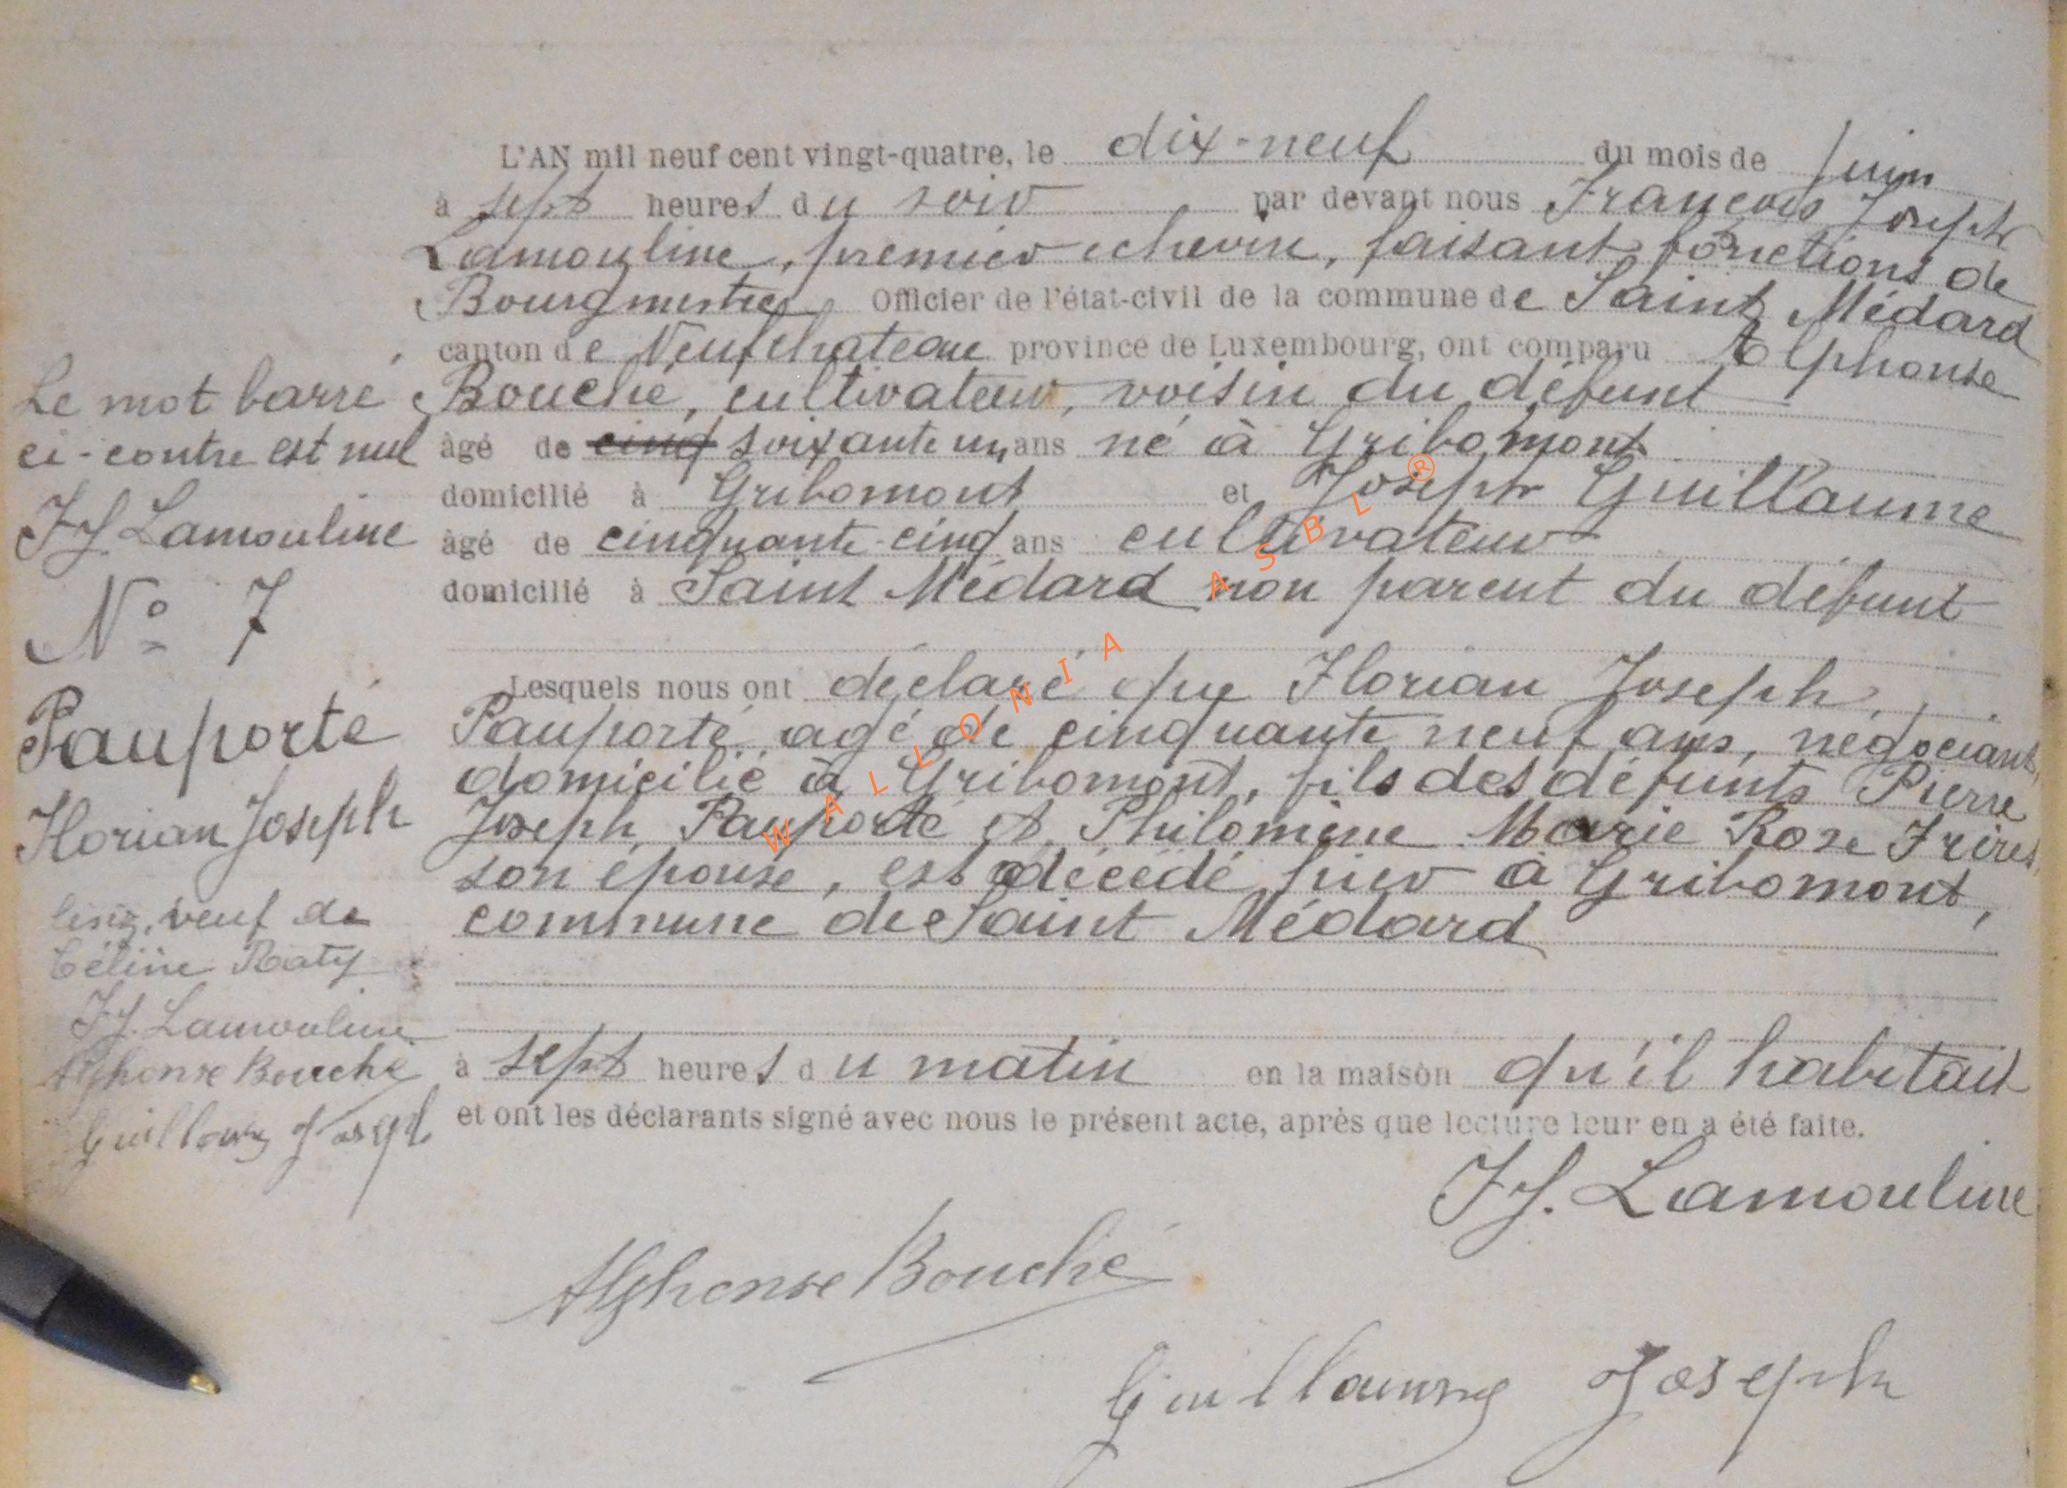 L'AN mil neuf cent vingt-quatre, le dix-neuf du mois de Juin
à sept heures du soir par devant nous François Joseph
Lamouline, premier echevin, faisant fonctions de
Bourgmestre Officier de l'état-civil de la commune de Saint Médard
canton de Neufchateau province de Luxembourg, ont comparu Alphonse
Bouché, cultivateur, voisin du défunt
âgé de cinq soixante un ans né à Gribomont
domicilié à Gribomont et Joseph Guillaume
âgé de cinquante-cinq ans cultivateur
domicilié à Saint Médard non parent du défunt
Lesquels nous ont déclaré que Florian Joseph
Pauporté, agé de cinquante neuf ans, négociant,
domicilié à Gribomont, fils des défunts Pierre
Joseph Pauporté et Philomène Marie Rose Frères,
son épouse, est décédé hier à Gribomont,
commune de Saint Médard
à sept heures du matin en la maison qu'il habitait
et ont les déclarants signé avec nous le présent acte, après que lecture leur en a été faite.
FJ. Lamouline
Alphonse Bouché
Guillaume Joseph
Le mot barré
ci-contre est nul
FJ. Lamouline
No 7
Pauporté
Florian Joseph
veuf de
Céline Raty
FJ. Lamouline
Alphonse Bouché
Guillaume Joseph
WALLONIA ASBL ®